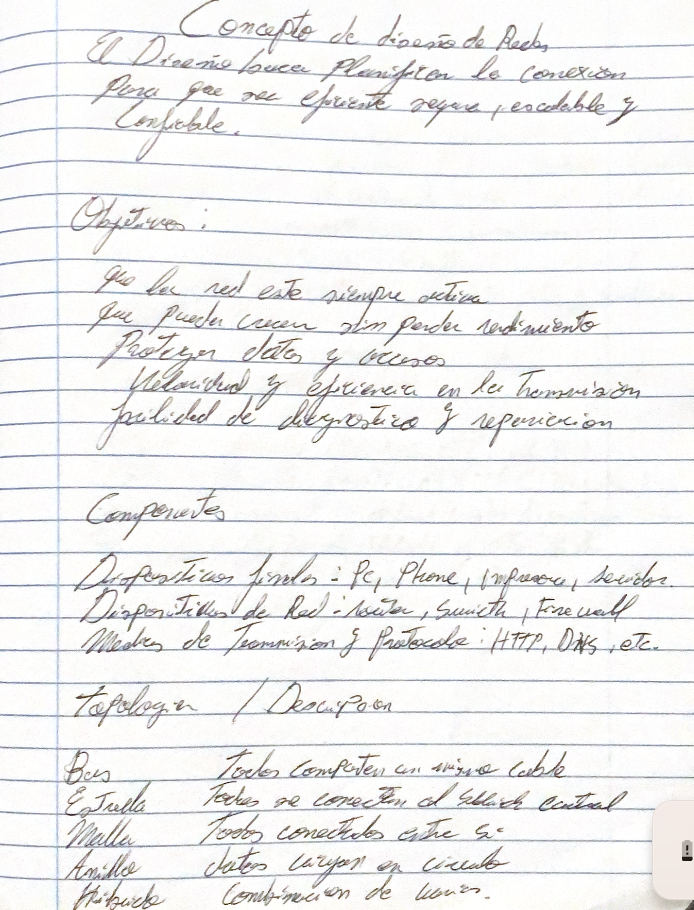 Concepto de diseño de Redes
El Diseño busca Planificar la conexion
Para que sea eficiente segura, escalable y
Confiable.
Objetivos :
que la red este siempre activa
que pueda crecer sin perder rendimiento
Proteger datos y accesos
Velocidad y eficiencia en la Transmision
facilidad de diagnostico y reparacion
Componentes
Dispositivos finales : Pc, Phone, Impresora, servidor.
Dispositivos de Red : router, Swicth, Firewall
Medios de Transmision y Protocolo : HTTP, DNS, etc.
Topologia / Descripcion
Bus Todos comparten un mismo cable
Estrella Todos se conectan al Switch central
Malla Todos conectados entre si
Anillo datos viajan en circulo
Hibrido Combinacion de varias.